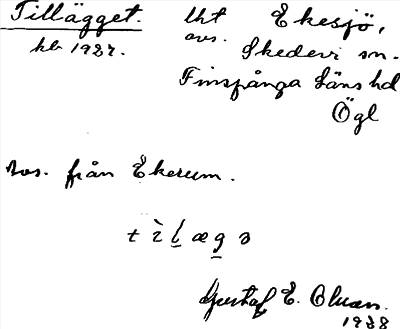 Tillägget. Uht Ekesjö,
kb 1927. avs. Skedevi sn.
Finspånga läns hd
Ögl
avs. från Ekerum.
t ì l æ g ɜ
Gustaf E. Olsson.
1938